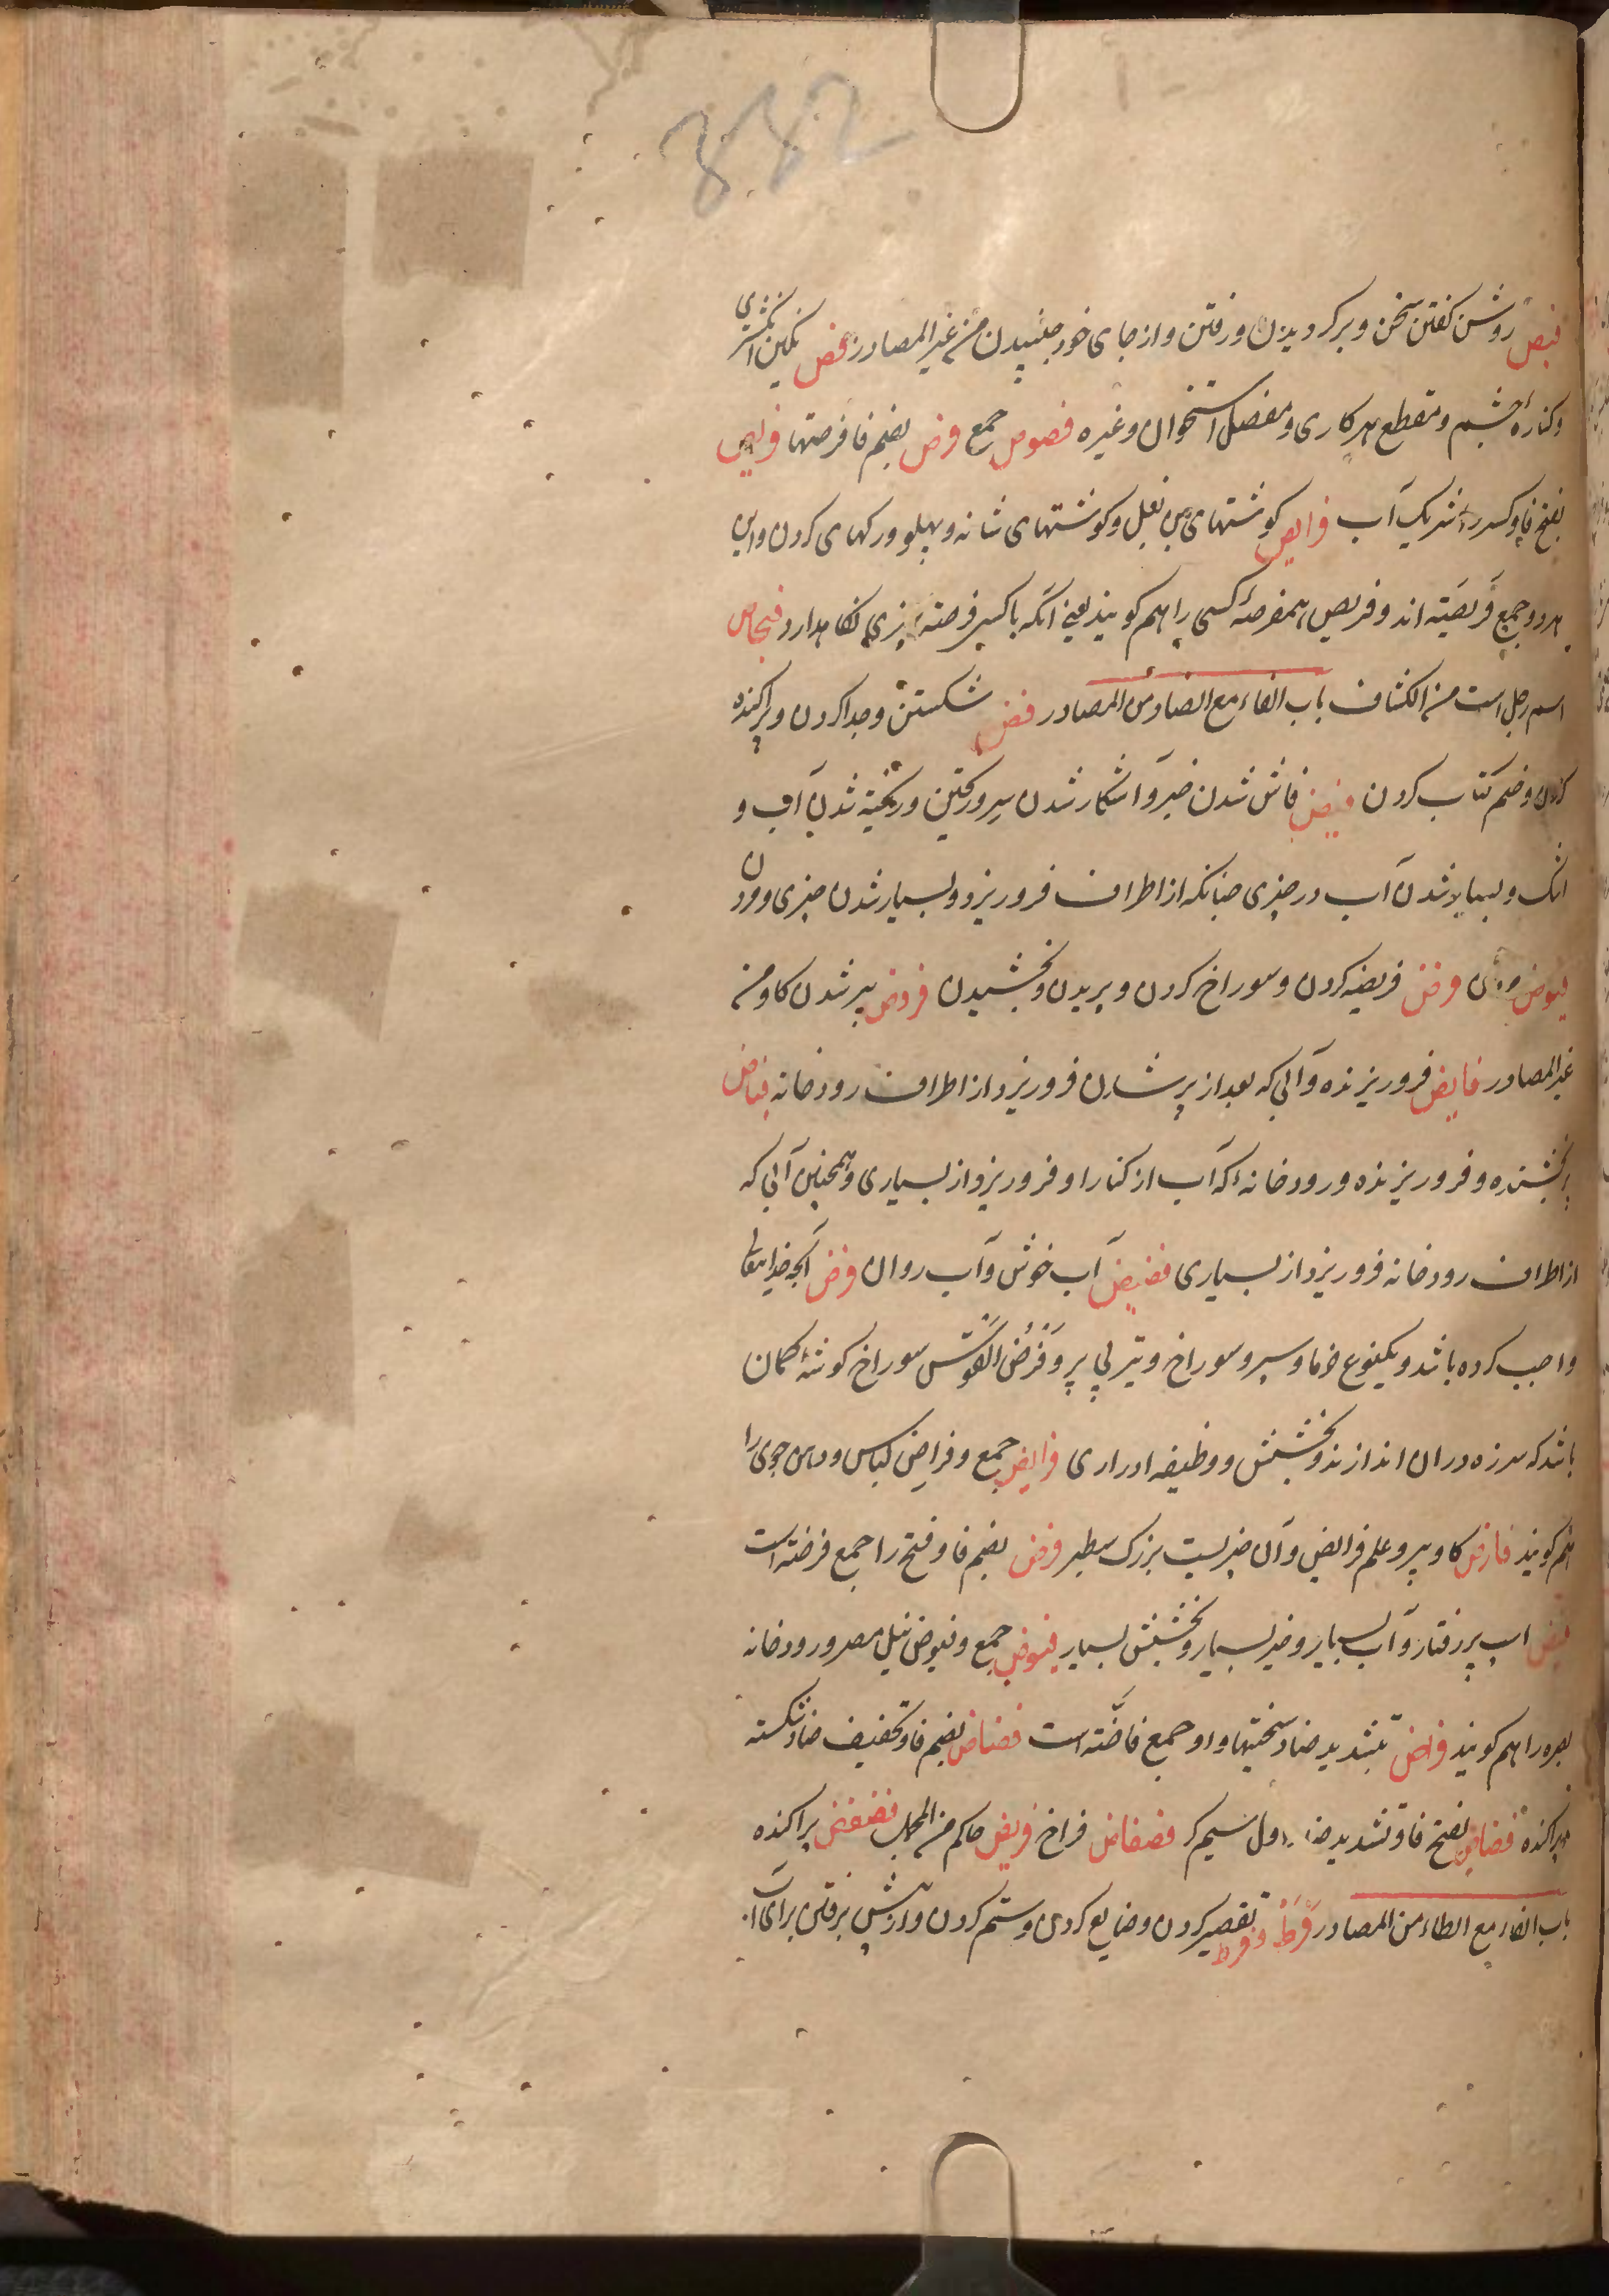 382
فیص روشن کفتن سخن و برکردیدن و رفتن و از جای خود جنبیدن من غیر المصادر فص نکین انکشتری
و کنارهٔ چشم و مقطع هر کاری و مفصل استخوان و غیره فصوص جمع فرص بضم فا فرصتها فریص
بفتح فا و کسر را شریک آب فرایص کوشتهای بن بغل و کوشتهای شانه و پهلو و رکهای کردن و این
هر دو جمع فریصَته اند و فریص همفرصهٔ کسی را هم کویند یعنی انکه با کسی فرصته چیزی نکاه دارد
اسم رجل است من الکشاف باب الفاء مع الضاد من المصادر فض شکستن و جدا کردن و پراکنده
کردن و ختم کتاب کردن فیض فاش شدن خبر و آشکار شدن سر و ریختن و ریخته شدن آب و
اشک و بسیار شدن آب در چیزی چنانکه از اطراف فرو ریزد و بسیار شدن چیزی و مردن
فیوض مردن فرض فریضه کردن و سوراخ کردن و بریدن و بخشیدن فروض پیر شدن کاو من
غیر المصادر فایض فرو ریزنده و آبی که بعد از پر شدن فرو ریزد از اطراف رودخانه فیاض
بخشنده و فرو ریزنده و رودخانهٔ که آب از کنار او فرو ریزد از بسیاری و همچنین آبی که
از اطراف رودخانه فرو ریزد از بسیاری فضیض آب خوش و آب روان فرض آنچه خدایتعالی
واجب کرده باشد و یکنوع خرما و سپر و سوراخ و تیر بی پر و فَرْضُ القَوْس سوراخ کوشهٔ کمان
باشد که سر زه در ان اندازند و بخشش و وظیفه ادراری فرایض جمع و فراض لباس و دهن جوی را
هم کویند فارض کاو پیر و علم فرایض و آن چیزیست بزرک سطبر فرض بضم فا و فتح را جمع فرضته است
فیض اسپ پر رفتار و آب بسیار و خیر بسیار و بخشش بسیار فیوض جمع و فیوض نیل مصر و رودخانه
بصره را هم کویند فواض بتشدید ضاد سختیها و او جمع فاضّته است فضاض بضم فا و تخفیف ضاد شکسته
و پراکنده فضاض بفتح فا و تشدید ضاد اول سیم کر فضفاض فراخ فریض حاکم من المجمل فضفض پراکنده
باب الفاء مع الطاء من المصادر فَرَطْ و فرط تقصیر کردن و ضایع کردن و ستم کردن و از پیش برفتن برای آب